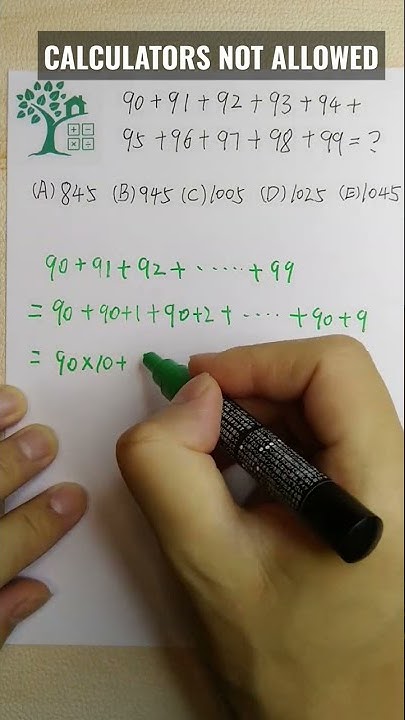 CALCULATORS NOT ALLOWED
90+91+92+93+94+
95+96+97+98+99=?
(A)845 (B)945 (C)1005 (D)1025 (E)1045
90+91+92+......+99
=90+90+1+90+2+....+90+9
=90×10+